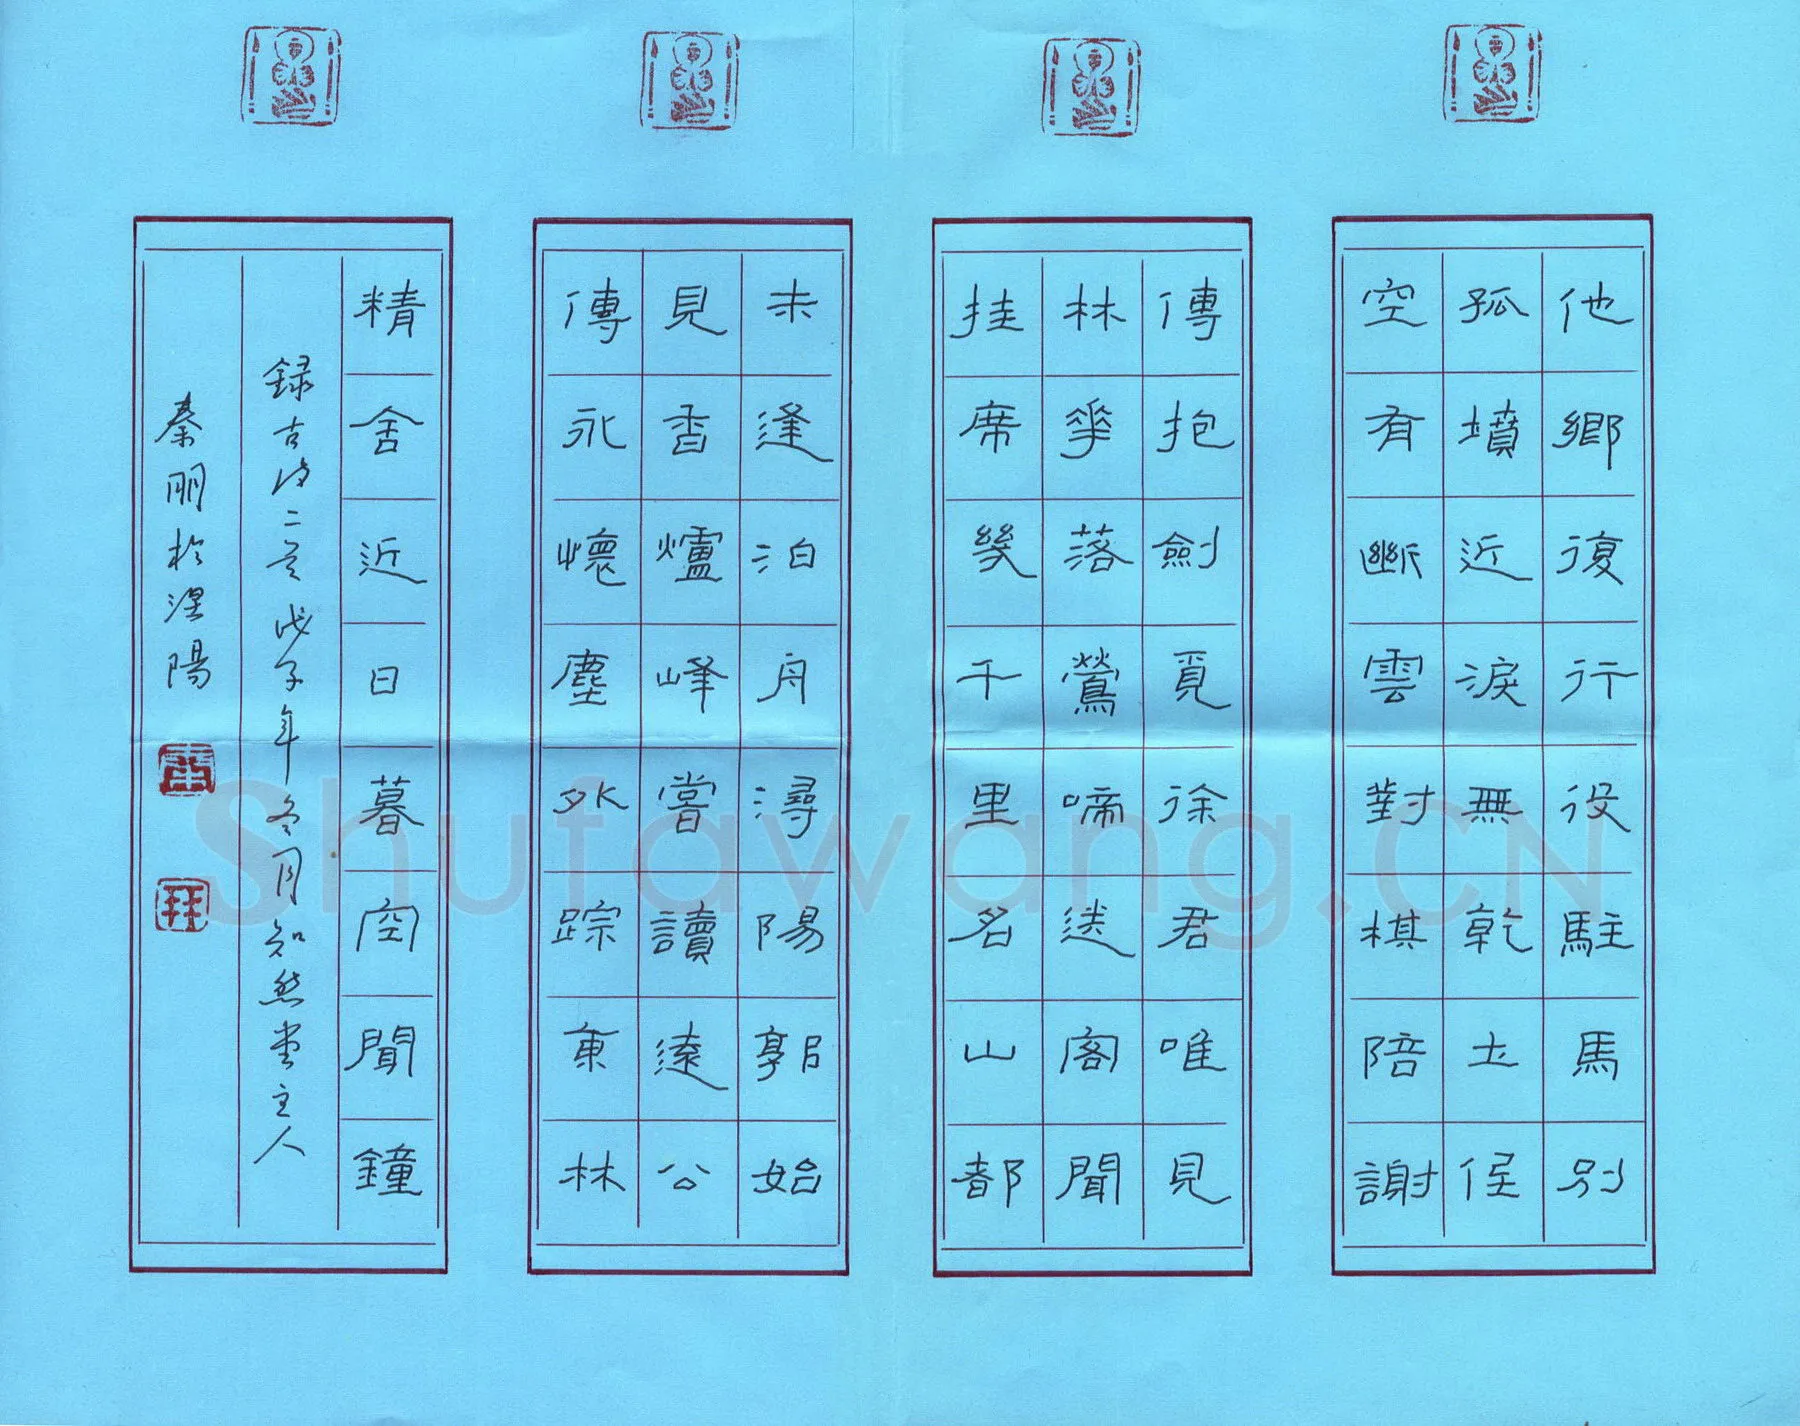 他鄉復行役駐馬別
孤墳近淚無乾土低
空有斷雲對棋陪謝
傳抱劍覓徐君唯見
林華落鶯啼送閣聞
挂席幾千里名山都
未逢泊舟潯陽郭始
見香爐峰嘗讀遠公
傳永懷塵外踪東林
精舍近日暮空聞鐘
録古詩二首戊子年冬月知然堂主人
秦朋於涅陽
Shufawang.CN